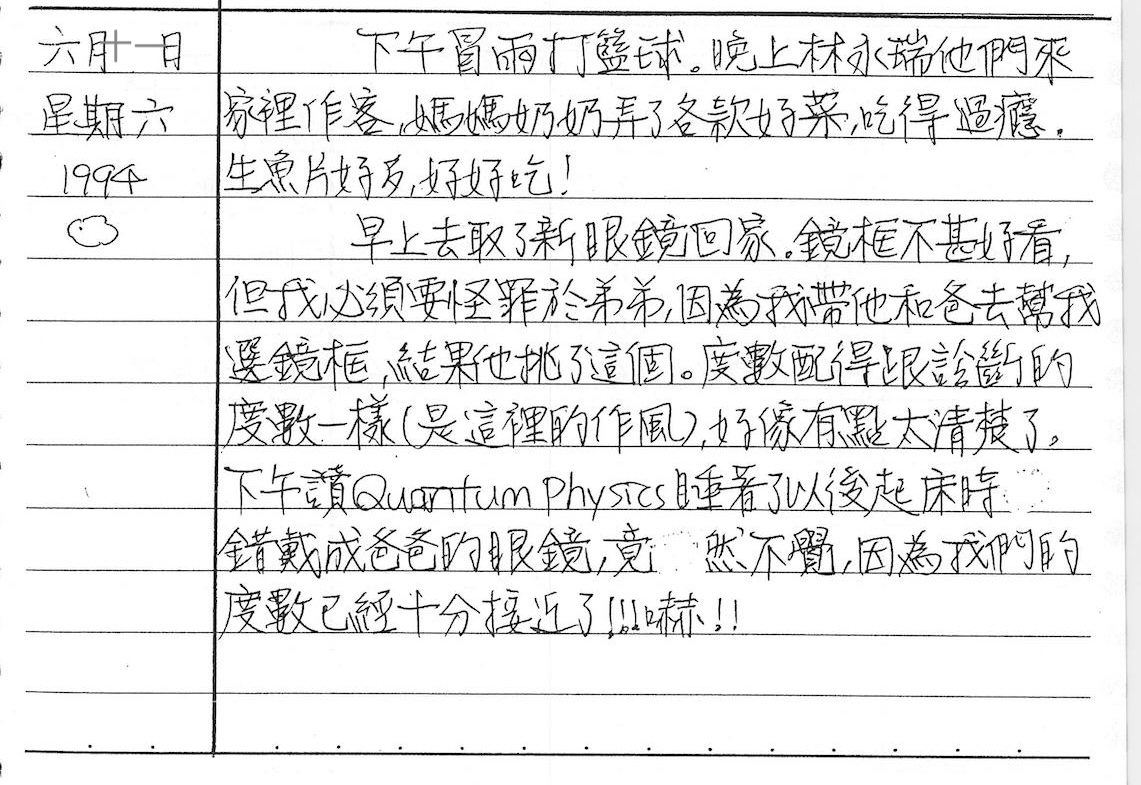 六月十一日
星期六
1994
下午冒雨打籃球。晚上林永瑞他們來
家裡作客,媽媽奶奶弄了各款好菜,吃得過癮.
生魚片好多,好好吃!
早上去取了新眼鏡回家。鏡框不甚好看,
但我必須要怪罪於弟弟,因為我帶他和爸去幫我
選鏡框,結果他挑了這個。度數配得跟診斷的
度數一樣(是這裡的作風),好像有點太清楚了。
下午讀Quantum Physics睡著了以後起床時
錯戴成爸爸的眼鏡,竟然不覺,因為我們的
度數已經十分接近了!!!嚇!!